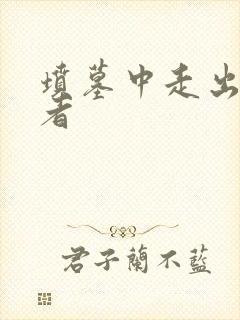 墳墓中走出
者
君子蘭不藍